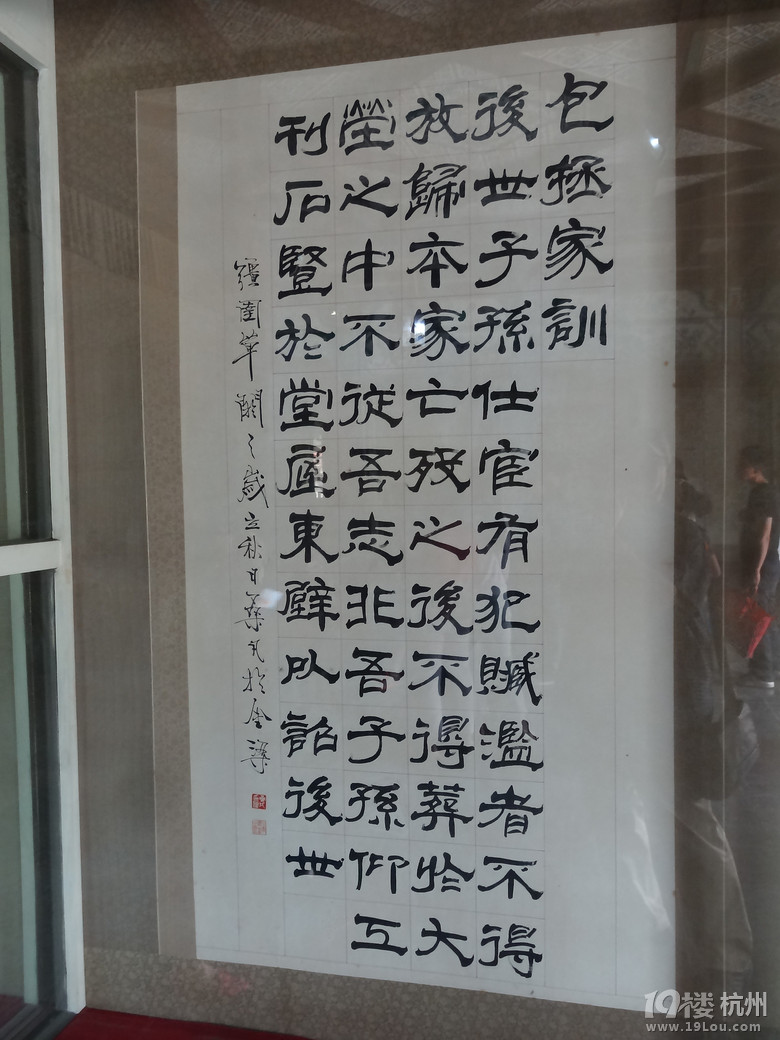 包拯家訓
後世子孫仕宦有犯贓濫者不得
放歸本家亡殁之後不得葬於大
塋之中不從吾志非吾子孫仰工
刊石豎於堂屋東壁以詔後世
彊圉單閼之歲立秋日於金
19楼 杭州
www.19Lou.com